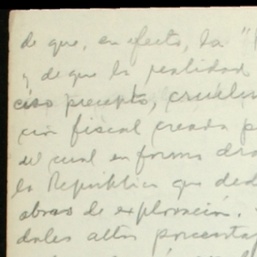 de que, en efecto, la "
y de que la realidad
ciso precepto,
ción fiscal creada p
del cual en forma dra
la República que ded
obras de exploración.
dales altos porcenta